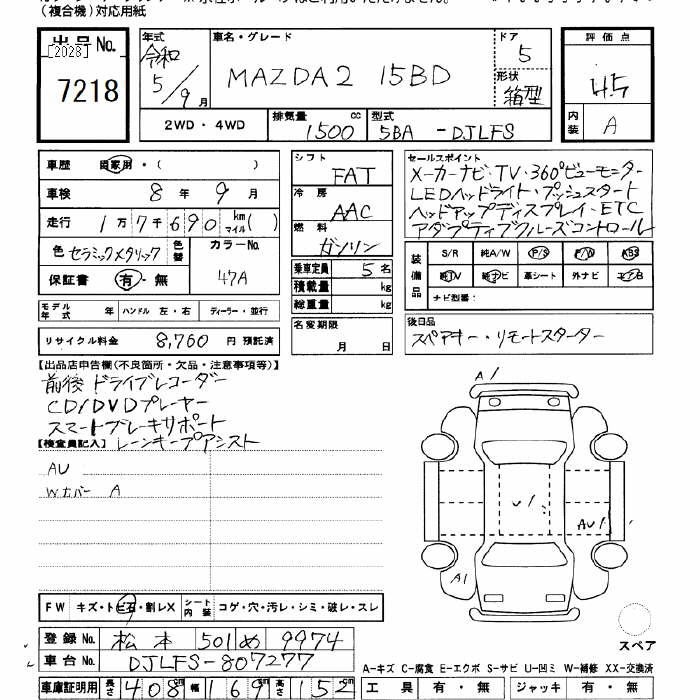 (複合機)対応用紙
出品No.
[2023]
7218
年式
令和
5/9月
車名・グレード
MAZDA2 15BD
ドア
5
形状
箱型
評価点
4.5
内装
A
2WD・4WD
排気量
1500 cc
型式
5BA-DJLFS
車歴 自家用・( )
車検 8年9月
走行 1万7千690 km マイル( )
色 セラミックメタリック 色替
カラーNo.
47A
保証書 有・無
モデル年式 年 ハンドル 左・右 ディーラー・並行
リサイクル料金 8,760 円 預託済
シフト
FAT
冷房
AAC
燃料
ガソリン
乗車定員 5名
積載量 kg
総重量 kg
名変期限
月 日
セールスポイント
メーカーナビ・TV・360°ビューモニター
LEDヘッドライト・プッシュスタート
ヘッドアップディスプレイ・ETC
アダプティブクルーズコントロール
装備品
S/R 純A/W P/S P/W ABS
純TV 純ナビ 革シート 外ナビ エアB
ナビ型番:
後日品
スペアキー・リモートスターター
【出品店申告欄(不良箇所・欠品・注意事項等)】
前後ドライブレコーダー
CD/DVDプレーヤー
スマートブレーキサポート
レーンキープアシスト
【検査員記入】
AU
Wカバー A
A1
U1
AU1
A1
FW キズ・トビ石・割レX シート内装 コゲ・穴・汚レ・シミ・破レ・スレ
登録No. 松本 501 め 9974
車台No. DJLFS-807277
車庫証明用 長さ 408cm 幅 169cm 高さ 152cm
スペア
A-キズ C-腐食 E-エクボ S-サビ U-凹ミ W-補修 XX-交換済
工具 有・無 ジャッキ 有・無